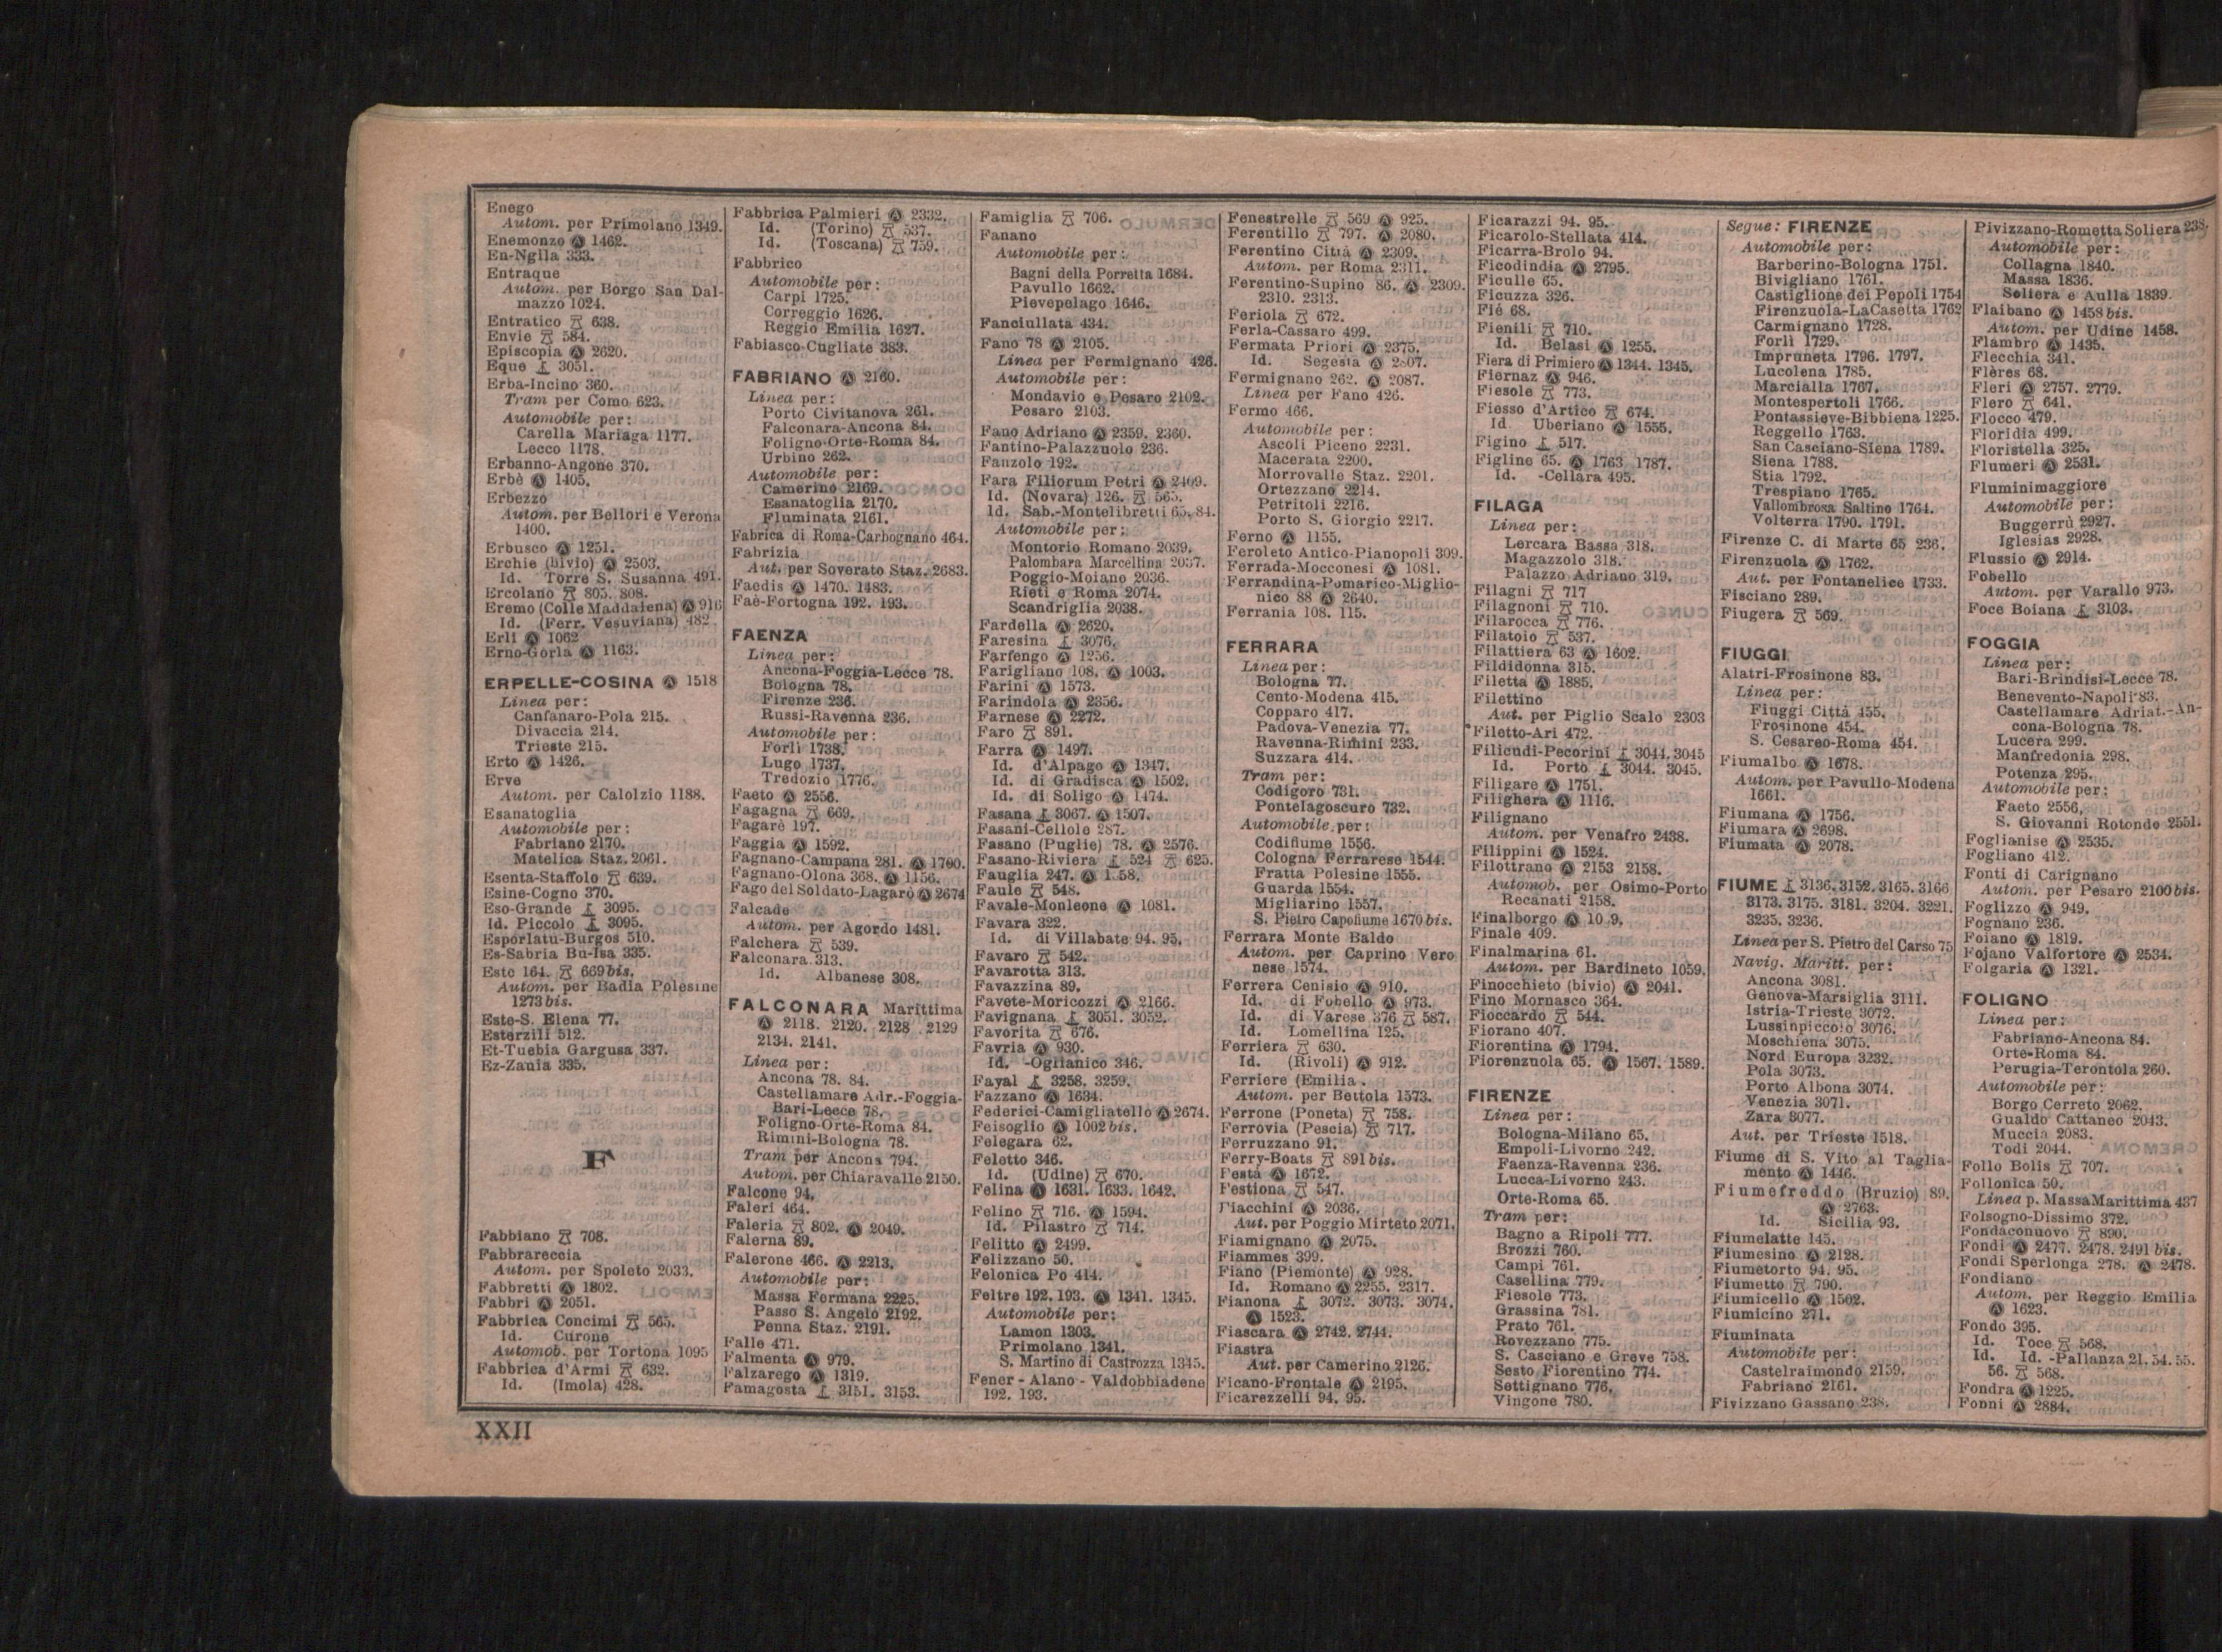 Enego
Autom. per Primolano 1349.
Enemonzo Ⓐ 1462.
En-Ngila 333.
Entraque
Autom. per Borgo San Dal-
mazzo 1024.
Entratico 638.
Envie 584.
Episcopia Ⓐ 2620.
Eque 3051.
Erba-Incino 360.
Tram per Como 623.
Automobile per:
Carella Mariaga 1177.
Lecco 1178.
Erbanno-Angone 370.
Erbè Ⓐ 1405.
Erbezzo
Autom. per Bellori e Verona
1400.
Erbusco Ⓐ 1251.
Erchie (bivio) Ⓐ 2503.
Id. Torre S. Susanna 491.
Ercolano 805. 808.
Eremo (Colle Maddalena) Ⓐ 916
Id. (Ferr. Vesuviana) 482.
Erli Ⓐ 1062
Erno-Gorla Ⓐ 1163.
ERPELLE-COSINA Ⓐ 1518
Linea per:
Canfanaro-Pola 215.
Divaccia 214.
Trieste 215.
Erto Ⓐ 1426.
Erve
Autom. per Calolzio 1188.
Esanatoglia
Automobile per:
Fabriano 2170.
Matelica Staz. 2061.
Esenta-Staffolo 639.
Esine-Cogno 370.
Eso-Grande 3095.
Id. Piccolo 3095.
Esporlatu-Burgos 510.
Es-Sabria Bu-Isa 335.
Este 164. 669 bis.
Autom. per Badia Polesine
1273 bis.
Este-S. Elena 77.
Esterzili 512.
Et-Tuebia Gargusa 337.
Ez-Zauia 335.
F
Fabbiano 708.
Fabbrareccia
Autom. per Spoleto 2033.
Fabbretti Ⓐ 1802.
Fabbri Ⓐ 2051.
Fabbrica Concimi 565.
Id. Curone
Automob. per Tortona 1095
Fabbrica d'Armi 632.
Id. (Imola) 428.
Fabbrica Palmieri Ⓐ 2332.
Id. (Torino) 537.
Id. (Toscana) 759.
Fabbrico
Automobile per:
Carpi 1725.
Correggio 1626.
Reggio Emilia 1627.
Fabiasco-Cugliate 383.
FABRIANO Ⓐ 2160.
Linea per:
Porto Civitanova 261.
Falconara-Ancona 84.
Foligno-Orte-Roma 84.
Urbino 262.
Automobile per:
Camerino 2169.
Esanatoglia 2170.
Fluminata 2161.
Fabrica di Roma-Carbognano 464.
Fabrizia
Aut. per Soverato Staz. 2683.
Faedis Ⓐ 1470. 1483.
Faè-Fortogna 192. 193.
FAENZA
Linea per:
Ancona-Foggia-Lecce 78.
Bologna 78.
Firenze 236.
Russi-Ravenna 236.
Automobile per:
Forlì 1738.
Lugo 1737.
Tredozio 1776.
Faeto Ⓐ 2556.
Fagagna 669.
Fagarè 197.
Faggia Ⓐ 1592.
Fagnano-Campana 281. Ⓐ 1760.
Fagnano-Olona 368. Ⓐ 1156.
Fago del Soldato-Lagarò Ⓐ 2674
Falcade
Autom. per Agordo 1481.
Falchera 539.
Falconara 313.
Id. Albanese 308.
FALCONARA Marittima
Ⓐ 2118. 2120. 2128. 2129
2134. 2141.
Linea per:
Ancona 78. 84.
Castellamare Adr.-Foggia-
Bari-Lecce 78.
Foligno-Orte-Roma 84.
Rimini-Bologna 78.
Tram per Ancona 794.
Autom. per Chiaravalle 2150.
Falcone 94.
Faleri 464.
Faleria 802. Ⓐ 2049.
Falerna 89.
Falerone 466. Ⓐ 2213.
Automobile per:
Massa Fermana 2225.
Passo S. Angelo 2192.
Penna Staz. 2191.
Falle 471.
Falmenta Ⓐ 979.
Falzarego Ⓐ 1319.
Famagosta 3151. 3153.
Famiglia 706.
Fanano
Automobile per:
Bagni della Porretta 1684.
Pavullo 1662.
Pievepelago 1646.
Fanciullata 434.
Fano 78 Ⓐ 2105.
Linea per Fermignano 426.
Automobile per:
Mondavio e Pesaro 2102.
Pesaro 2103.
Fano Adriano Ⓐ 2359. 2360.
Fantino-Palazzuolo 236.
Fanzolo 192.
Fara Filiorum Petri Ⓐ 2409.
Id. (Novara) 126. 565.
Id. Sab.-Montelibretti 65. 84.
Automobile per:
Montorio Romano 2039.
Palombara Marcellina 2037.
Poggio-Moiano 2036.
Rieti e Roma 2074.
Scandriglia 2038.
Fardella Ⓐ 2620.
Faresina 3076.
Farfengo Ⓐ 1256.
Farigliano 108. Ⓐ 1003.
Farini Ⓐ 1573.
Farindola Ⓐ 2356.
Farnese Ⓐ 2272.
Faro 891.
Farra Ⓐ 1497.
Id. d'Alpago Ⓐ 1347.
Id. di Gradisca Ⓐ 1502.
Id. di Soligo Ⓐ 1474.
Fasana 3067. Ⓐ 1507.
Fasani-Cellole 287.
Fasano (Puglie) 78. Ⓐ 2576.
Fasano-Riviera 524 625.
Fauglia 247. Ⓐ
Faule 548.
Favale-Monleone Ⓐ 1081.
Favara 322.
Id. di Villabate 94. 95.
Favaro 542.
Favarotta 313.
Favazzina 89.
Favete-Moricozzi Ⓐ 2166.
Favignana 3051. 3052.
Favorita 676.
Favria Ⓐ 930.
Id. -Oglianico 346.
Fayal 3258. 3259.
Fazzano Ⓐ 1634.
Federici-Camigliatello Ⓐ 2674.
Feisoglio Ⓐ 1002 bis.
Felegara 62.
Feletto 346.
Id. (Udine) 670.
Felina Ⓐ 1631. 1633. 1642.
Felino 716. Ⓐ 1594.
Id. Pilastro 714.
Felitto Ⓐ 2499.
Felizzano 50.
Felonica Po 414.
Feltre 192. 193. Ⓐ 1341. 1345.
Automobile per:
Lamon 1303.
Primolano 1341.
S. Martino di Castrozza 1345.
Fener - Alano - Valdobbiadene
192. 193.
Fenestrelle 569 Ⓐ 925.
Ferentillo 797. Ⓐ 2080.
Ferentino Città Ⓐ 2309.
Autom. per Roma 2311.
Ferentino-Supino 86. Ⓐ 2309.
2310. 2313.
Feriola 672.
Ferla-Cassaro 499.
Fermata Priori Ⓐ 2375.
Id. Segesta Ⓐ 2807.
Fermignano 262. Ⓐ 2087.
Linea per Fano 426.
Fermo 466.
Automobile per:
Ascoli Piceno 2231.
Macerata 2200.
Morrovalle Staz. 2201.
Ortezzano 2214.
Petritoli 2216.
Porto S. Giorgio 2217.
Ferno Ⓐ 1155.
Feroleto Antico-Pianopoli 309.
Ferrada-Mocconesi Ⓐ 1081.
Ferrandina-Pomarico-Miglio-
nico 88 Ⓐ 2640.
Ferrania 108. 115.
FERRARA
Linea per:
Bologna 77.
Cento-Modena 415.
Copparo 417.
Padova-Venezia 77.
Ravenna-Rimini 233.
Suzzara 414.
Tram per:
Codigoro 731.
Pontelagoscuro 732.
Automobile per:
Codifiume 1556.
Cologna Ferrarese 1544.
Fratta Polesine 1555.
Guarda 1554.
Migliarino 1557.
S. Pietro Capofiume 1670 bis.
Ferrara Monte Baldo
Autom. per Caprino Vero
nese 1574.
Ferrera Cenisio Ⓐ 910.
Id. di Fobello Ⓐ 973.
Id. di Varese 376 587.
Id. Lomellina 125.
Ferriera 630.
Id. (Rivoli) Ⓐ 912.
Ferriere (Emilia .
Autom. per Bettola 1573.
Ferrone (Poneta) 758.
Ferrovia (Pescia) 717.
Ferruzzano 91.
Ferry-Boats 891 bis.
Festà Ⓐ 1672.
Festiona 547.
Fiacchini Ⓐ 2036.
Aut. per Poggio Mirteto 2071.
Fiamignano Ⓐ 2075.
Fiammes 399.
Fiano (Piemonte) Ⓐ 928.
Id. Romano Ⓐ 2255. 2317.
Fianona 3072. 3073. 3074.
Ⓐ 1523.
Fiascara Ⓐ 2742. 2744.
Fiastra
Aut. per Camerino 2126.
Ficano-Frontale Ⓐ 2195.
Ficarezzelli 94. 95.
Ficarazzi 94. 95.
Ficarolo-Stellata 414.
Ficarra-Brolo 94.
Ficodindia Ⓐ 2795.
Ficulle 65.
Ficuzza 326.
Fié 68.
Fienili 710.
Id. Belasi Ⓐ 1255.
Fiera di Primiero Ⓐ 1344. 1345.
Fiernaz Ⓐ 946.
Fiesole 773.
Fiesso d'Artico 674.
Id Uberiano Ⓐ 1555.
Figino 517.
Figline 65. Ⓐ 1763. 1787.
Id. -Cellara 495.
FILAGA
Linea per:
Lercara Bassa 318.
Magazzolo 318.
Palazzo Adriano 319.
Filagni 717
Filagnoni 710.
Filarocca 776.
Filatoio 537.
Filattiera 63 Ⓐ 1602.
Fildidonna 315.
Filetta Ⓐ 1885.
Filettino
Aut. per Piglio Scalo 2303
Filetto-Ari 472.
Filicudi-Pecorini 3044. 3045
Id. Porto 3044. 3045.
Filigare Ⓐ 1751.
Filighera Ⓐ 1116.
Filignano
Autom. per Venafro 2438.
Filippini Ⓐ 1524.
Filottrano Ⓐ 2153 2158.
Automob. per Osimo-Porto
Recanati 2158.
Finalborgo Ⓐ
Finale 409.
Finalmarina 61.
Autom. per Bardineto 1059.
Finocchieto (bivio) Ⓐ 2041.
Fino Mornasco 364.
Fioccardo 544.
Fiorano 407.
Fiorentina Ⓐ 1794.
Fiorenzuola 65. Ⓐ 1567. 1589.
FIRENZE
Linea per:
Bologna-Milano 65.
Empoli-Livorno 242.
Faenza-Ravenna 236.
Lucca-Livorno 243.
Orte-Roma 65.
Tram per:
Bagno a Ripoli 777.
Brozzi 760.
Campi 761.
Casellina 779.
Fiesole 773.
Grassina 781.
Prato 761.
Rovezzano 775.
S. Casciano e Greve 758.
Sesto Fiorentino 774.
Settignano 776.
Vingone 780.
Segue: FIRENZE
Automobile per:
Barberino-Bologna 1751.
Bivigliano 1761.
Castiglione dei Pepoli 1754
Firenzuola-La Casetta 1762
Carmignano 1728.
Forlì 1729.
Impruneta 1796. 1797.
Lucolena 1785.
Marcialla 1767.
Montespertoli 1766.
Pontassieve-Bibbiena 1225.
Reggello 1763.
San Casciano-Siena 1789.
Siena 1788.
Stia 1792.
Trespiano 1765.
Vallombrosa Saltino 1764.
Volterra 1790. 1791.
Firenze C. di Marte 65 236.
Firenzuola Ⓐ 1762.
Aut. per Fontanelice 1733.
Fisciano 289.
Fiugera 569.
FIUGGI
Alatri-Frosinone 83.
Linea per:
Fiuggi Città 455.
Frosinone 454.
S. Cesareo-Roma 454.
Fiumalbo Ⓐ 1678.
Autom. per Pavullo-Modena
1661.
Fiumana Ⓐ 1756.
Fiumara Ⓐ 2698.
Fiumata Ⓐ 2078.
FIUME 3136. 3152. 3165. 3166
3173. 3175. 3181. 3204. 3221.
3235. 3236.
Linea per S. Pietro del Carso 75
Navig. Maritt. per:
Ancona 3081.
Genova-Marsiglia 3111.
Istria-Trieste 3072.
Lussinpiccolo 3076.
Moschiena 3075.
Nord Europa 3232.
Pola 3073.
Porto Albona 3074.
Venezia 3071.
Zara 3077.
Aut. per Trieste 1518.
Fiume di S. Vito al Taglia-
mento Ⓐ 1446.
Fiumefreddo (Bruzio) 89.
Ⓐ 2763.
Id. Sicilia 93.
Fiumelatte 145.
Fiumesino Ⓐ 2128.
Fiumetorto 94. 95.
Fiumetto 790.
Fiumicello Ⓐ 1502.
Fiumicino 271.
Fiuminata
Automobile per:
Castelraimondo 2159.
Fabriano 2161.
Fivizzano Gassano 238.
Pivizzano-Rometta Soliera 238.
Automobile per:
Collagna 1840.
Massa 1836.
Soliera e Aulla 1839.
Flaibano Ⓐ 1458 bis.
Autom. per Udine 1458.
Flambro Ⓐ 1435.
Flecchia 341.
Flères 68.
Fleri Ⓐ 2757. 2779.
Flero 641.
Flocco 479.
Floridia 499.
Floristella 325.
Flumeri Ⓐ 2531.
Fluminimaggiore
Automobile per:
Buggerrù 2927.
Iglesias 2928.
Flussio Ⓐ 2914.
Fobello
Autom. per Varallo 973.
Foce Boiana 3103.
FOGGIA
Linea per:
Bari-Brindisi-Lecce 78.
Benevento-Napoli 83.
Castellamare Adriat.-An-
cona-Bologna 78.
Lucera 299.
Manfredonia 298.
Potenza 295.
Automobile per:
Faeto 2556.
S. Giovanni Rotondo 2551.
Foglianise Ⓐ 2535.
Fogliano 412.
Fonti di Carignano
Autom. per Pesaro 2100 bis.
Foglizzo Ⓐ 949.
Fognano 236.
Foiano Ⓐ 1819.
Fojano Valfortore Ⓐ 2534.
Folgaria Ⓐ 1321.
FOLIGNO
Linea per:
Fabriano-Ancona 84.
Orte-Roma 84.
Perugia-Terontola 260.
Automobile per:
Borgo Cerreto 2062.
Gualdo Cattaneo 2043.
Muccia 2083.
Todi 2044.
Follo Bolis 707.
Follonica 50.
Linea p. Massa Marittima 437
Folsogno-Dissimo 372.
Fondaconuovo 890.
Fondi Ⓐ 2477. 2478. 2491 bis.
Fondi Sperlonga 278. Ⓐ 2478.
Fondiano
Autom. per Reggio Emilia
Ⓐ 1623.
Fondo 395.
Id. Toce 568.
Id. Id. -Pallanza 21. 54. 55.
56. 568.
Fondra Ⓐ 1225.
Fonni Ⓐ 2884.
XXII